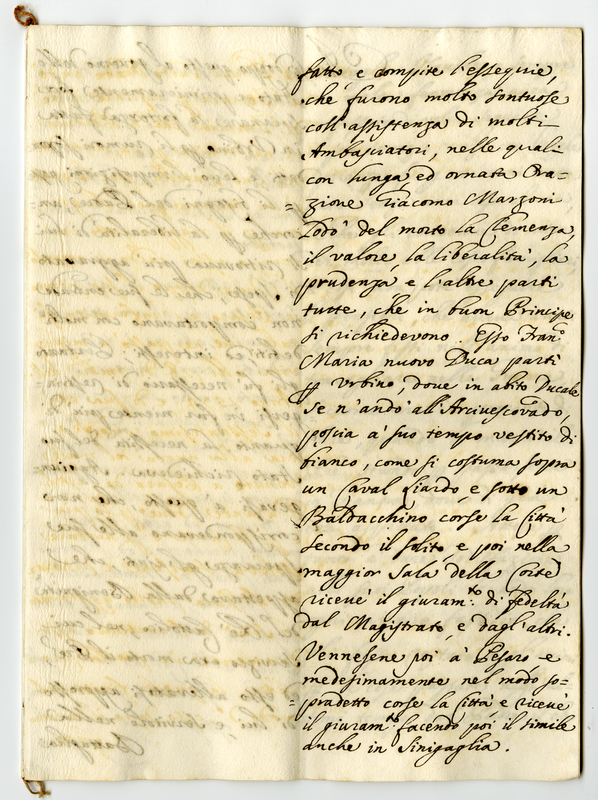 fatto, e compite l'essequie,
che furono molto sontuose
coll'assistenza di molti
Ambasciatori, nelle quali
con lunga, ed ornata Ora=
=zione Giacomo Marzoni
Lodò del morto la Clemenza,
il valore, la liberalità, la
prudenza e l'altre parti
tutte, che in buon Principe
si richiedevono. Esso Fran.co
Maria nuovo Duca partì
ꝑ Urbino, dove in abito Ducale
se n'andò all'Arcivescovado,
poscia à suo tempo vestito di
bianco, come si costuma sopra
un Caval Liardo, e sotto un
Baldacchino corse la Città
secondo il solito, e poi nella
maggior Sala della Corte
ricevè il giuram.to di fedeltà
dal Magistrato, e dagl'altri.
Vennesene poi à Pesaro e
medesimamente nel modo so=
=pradetto corse la Città e ricevè
il giuram.to facendo poi il simile
anche in Sinigaglia.